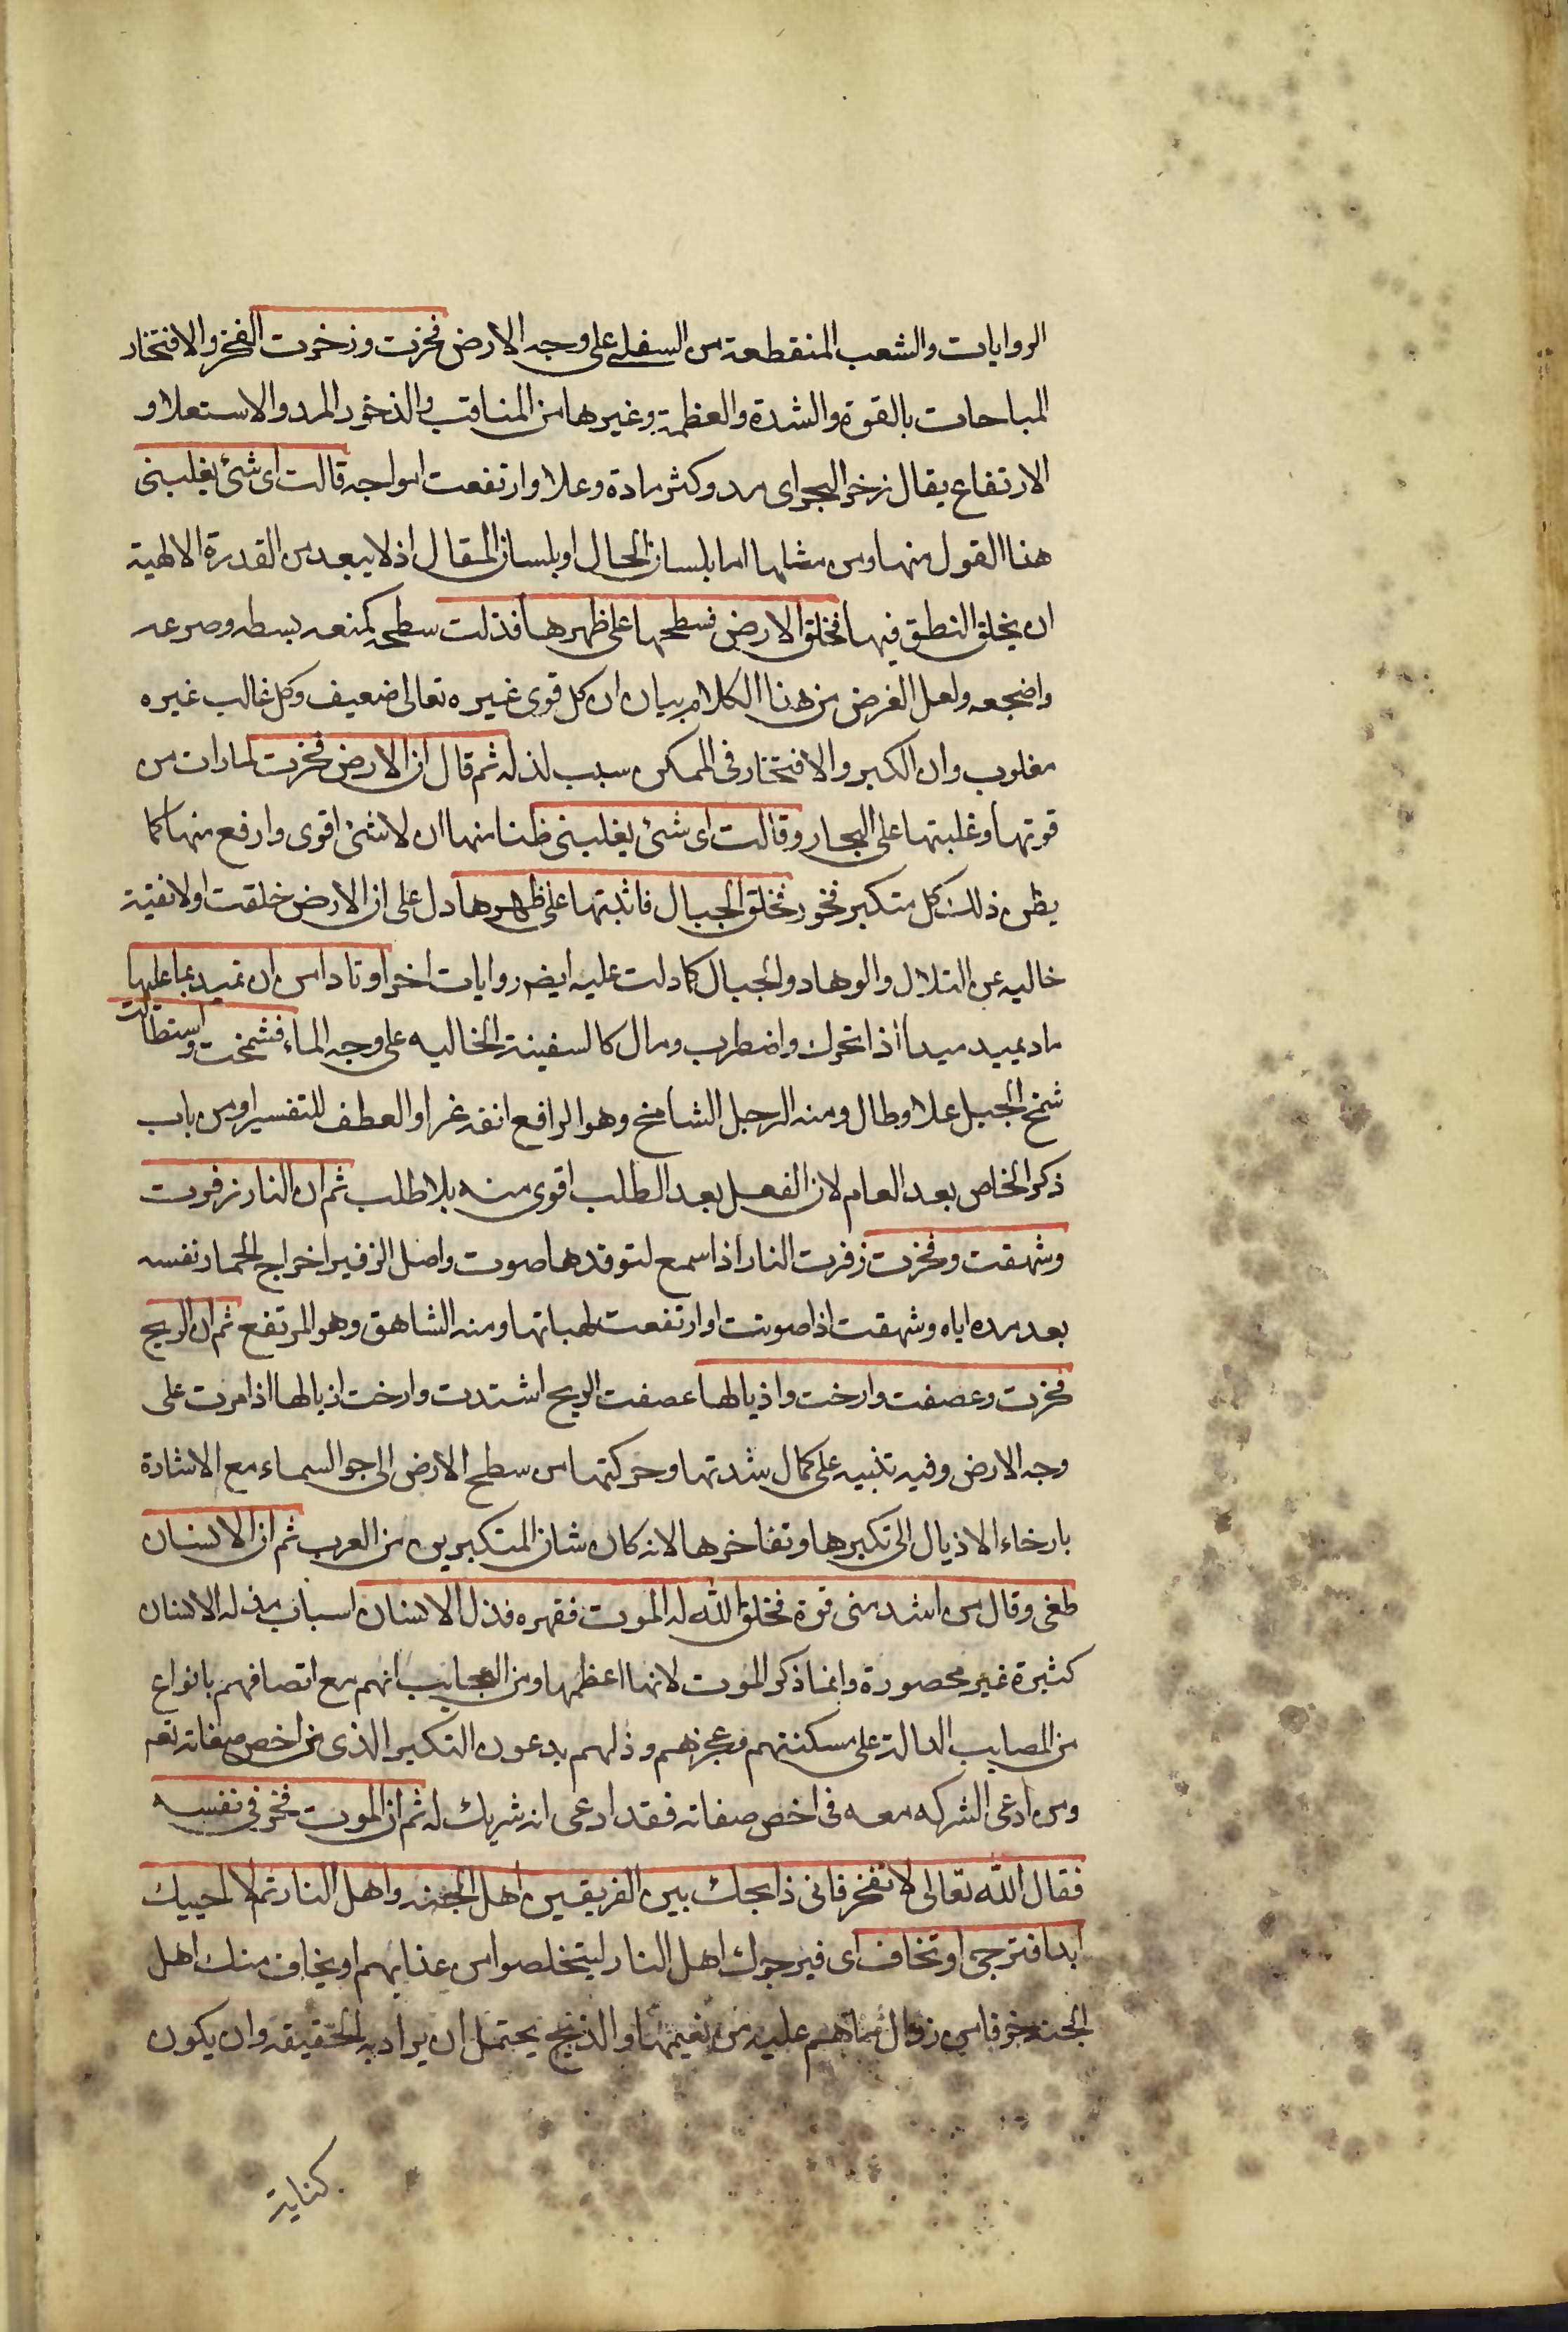 الروايات والشعب المنقطعة من السفلى على وجه الارض فخرت وزخرت الفخر والافتخار
المباحات بالقوة والشدة والعظمة وغيرها من المناقب والذخور المرد والاستعلا و
الارتفاع يقال زخر البحر اى مد وكثر مادة وعلا وارتفعت امواجه قالت اى شئ يغلبنى
هذا القول منها ومن مثلها اما بلسان الحال او بلسان المقال اذ لا يبعد من القدرة الالهية
ان يخلق النطق فيها فخلق الارض فسطحها على ظهرها فذلت سطحه كمنعه بسطه وصرعه
واضجعه ولعل الغرض من هذا الكلام بيان ان كل قوى غيره تعالى ضعيف وكل غالب غيره
مغلوب وان الكبر والافتخار فى الممكن سبب لذله ثم قال ان الارض فخرت لما رات من
قوتها وغلبتها على البحار وقالت اى شئ يغلبنى ظنا منها ان لا شئ اقوى وارفع منها كما
يظن ذلك كل متكبر فخور فخلق الجبال فاثبتها على ظهرها دل على ان الارض خلقت اولا نقية
خاليه عن التلال والوهاد والجبال كما دلت عليه ايضا روايات اخر اوتادا من ان تميد بما عليها
ماد يميد ميدا اذا تحرك واضطرب ومال كالسفينة الخاليه على وجه الماء فشمخت واستطالت
شمخ الجبل علا وطال ومنه الرجل الشامخ وهو الرافع انفه غرا والعطف للتفسير او من باب
ذكر الخاص بعد العام لان الفعل بعد الطلب اقوى منه بلا طلب ثم ان النار زفرت
وشهقت وفخرت زفرت النار اذا سمع لتوقدها صوت واصل الزفير اخراج الحمار نفسه
بعد مده اياه وشهقت اذا صوتت او ارتفعت لهباتها ومنه الشاهق وهو المرتفع ثم ان الريح
فخرت وعصفت وارخت واذيالها عصفت الريح اشتدت وارخت اذيالها اذا مرت على
وجه الارض وفيه تنبيه على كمال شدتها وحركتها من سطح الارض الى جو السماء مع الاشارة
بارخاء الاذيال الى تكبرها وتفاخرها لانه كان شان المتكبرين من العرب ثم ان الانسان
طغى وقال من اشد منى قوة فخلق الله له الموت فقهره فذل الانسان اسباب مذلة الانسان
كثيرة غير محصورة وانما ذكر الموت لانها اعظمها ومن العجايب انهم مع اتصافهم بانواع
من المصايب الدالة على مسكنتهم وعجزهم وذلهم يدعون التكبر الذى من اخص صفاته تعه
ومن ادعى الشركه معه فى اخص صفاته فقد ادعى انه شريك له ثم ان الموت فخر فى نفسه
فقال الله تعالى لا تفخر فانى ذابحك بين الفريقين اهل الجنه واهل النار ثم لا احييك
ابدا فترجى او تخاف اى فيرجوك اهل النار ليتخلصوا من عذابهم او يخاف منك اهل
الجنه خوفا من زوال ما هم عليه من نعيمها والذبح يحتمل ان يراد به الحقيقه وان يكون
كناية